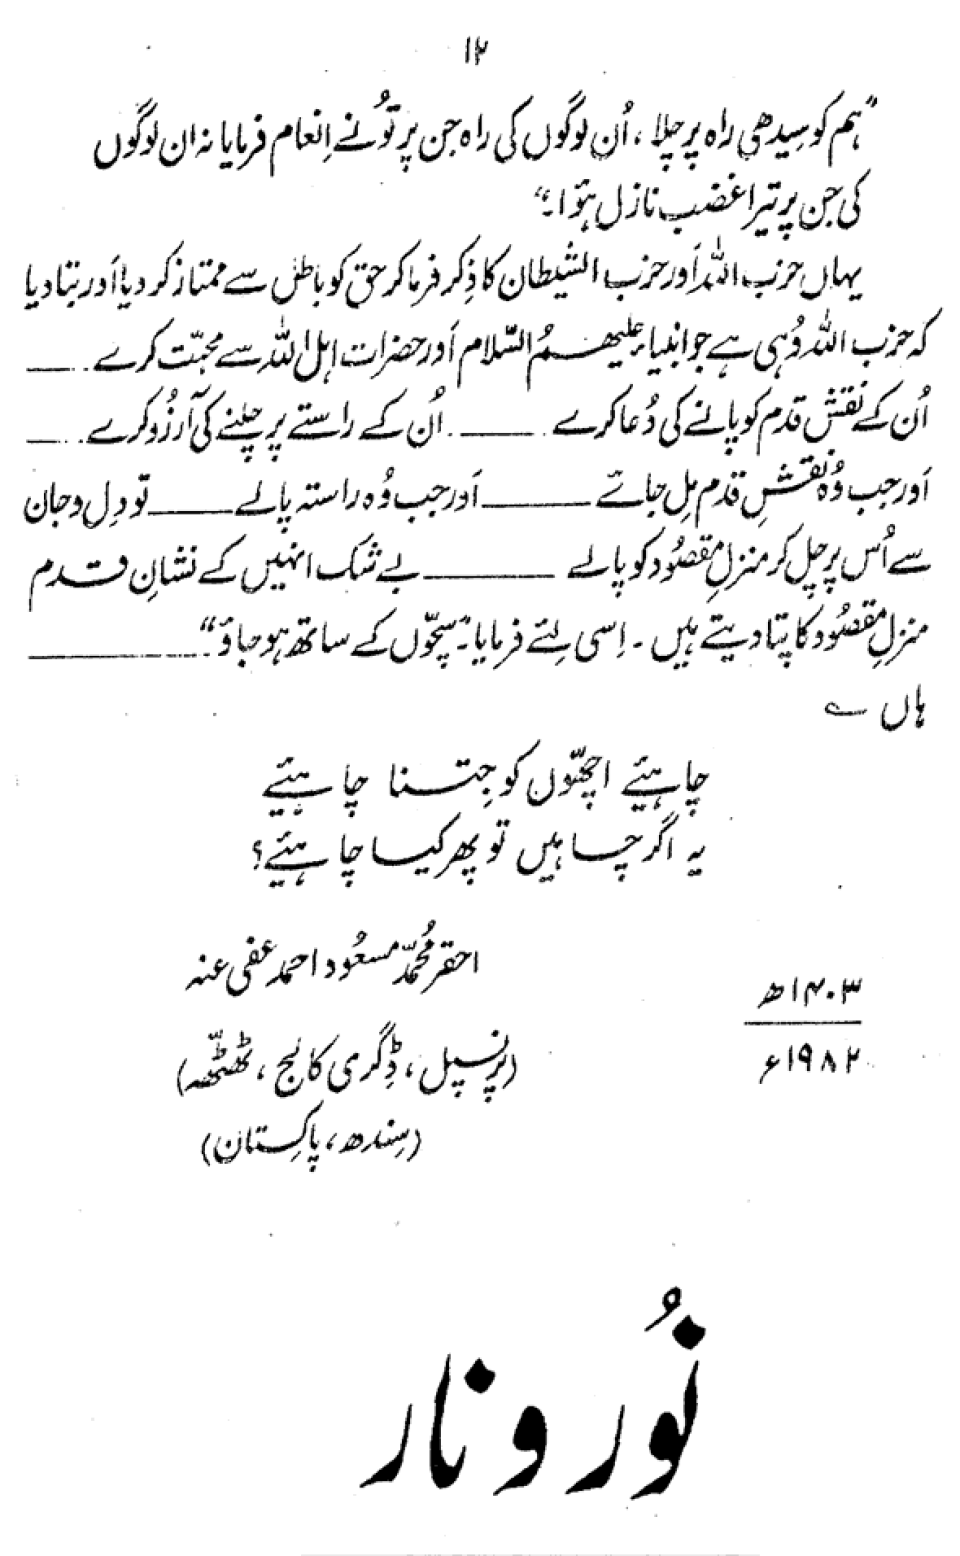 ۱۲
”ہم کو سِیدھی راہ پر چلا ، اُن لوگوں کی راہ جن پر تُونے اِنعام فرمایا نہ ان لوگوں
کی جن پر تیرا غضب نازل ہؤا۔“
یہاں حزب اللہ اَور حزب الشیطان کا ذِکر فرما کر حق کو باطل سے ممتاز کر دیا اَور بتا دیا
کہ حزب اللہ وُہی ہے جو انبیاء علیہمُ السّلام اَور حضرات اہل اللہ سے محبّت کرے ــــــ
اُن کے نقش قدم کو پانے کی دُعا کرے ــــــ اُن کے راستے پر چلنے کی آرزُو کرے ــــــ
اَور جب وُہ نقشِ قدم مِل جائے ــــــ اَور جب وُہ راستہ پالے ــــــ تو دِل و جان
سے اُس پر چل کر منزلِ مقصُود کو پالے ــــــ بے شک انہیں کے نشانِ قدم
منزلِ مقصُود کا پتا دیتے ہیں ۔ اِسی لئے فرمایا۔ ”سچّوں کے ساتھ ہو جاؤ“ ــــــ
ہاں ؎
چاہئیے اچھّوں کو جِتنا چاہئیے
یہ اگر چاہیں تو پھر کیا چاہئیے؟
احقر مُحمّد مسعُود احمد عفی عنہ
۱۴۰۳ھ
(پرنسپل ، ڈِگری کالج ، ٹھٹّھہ)
۱۹۸۲ء
(سِندھ، پاکِستان)
نُور و نار